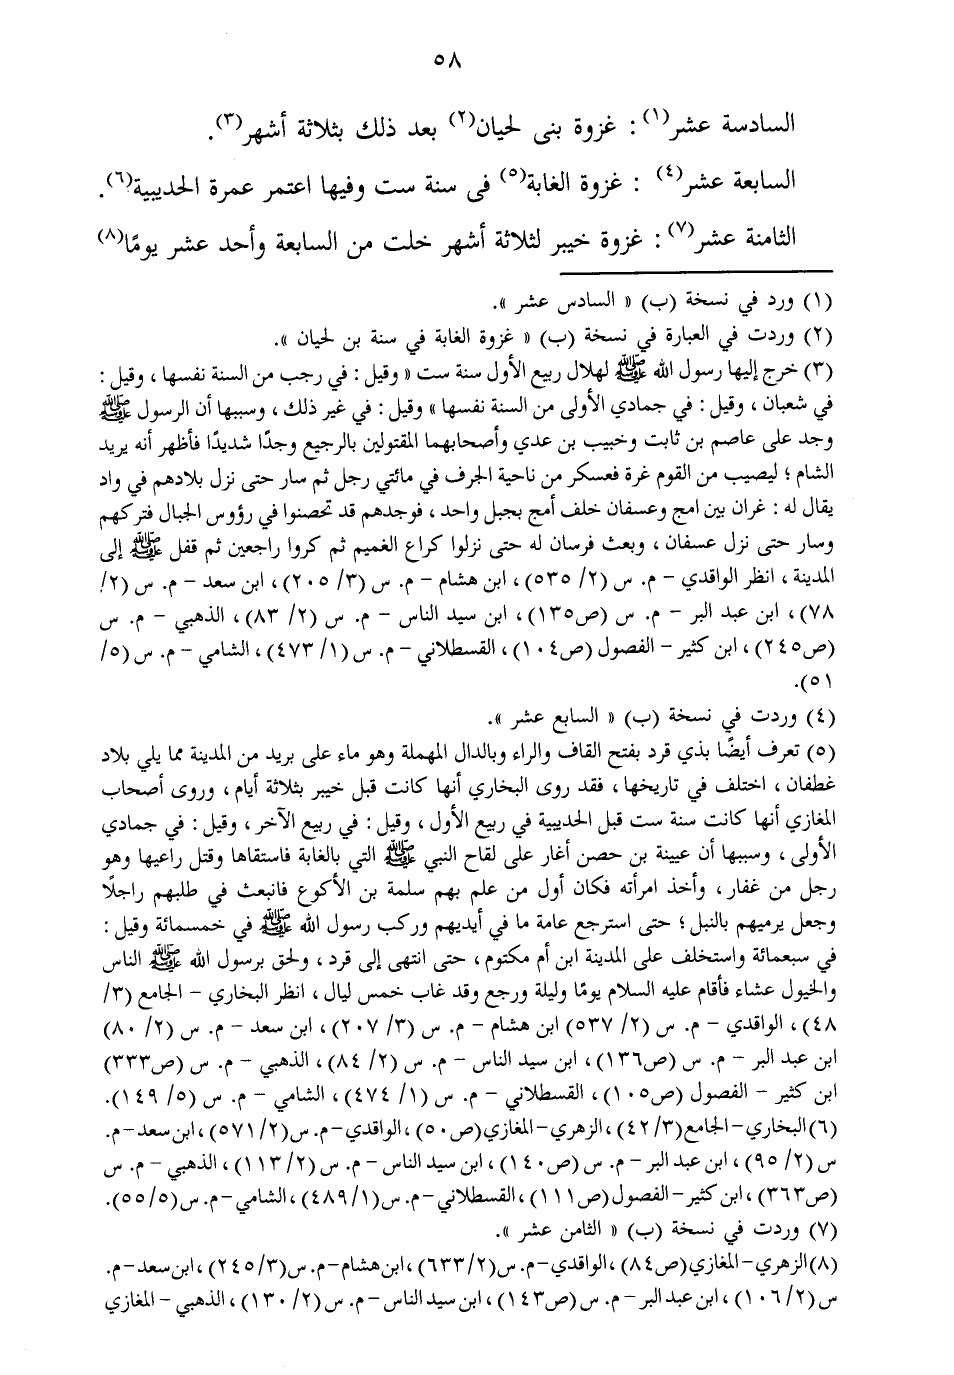 ٥٨
السادسة عشر(١) : غزوة بنى لحيان(٢) بعد ذلك بثلاثة أشهر(٣).
السابعة عشر(٤) : غزوة الغابة(٥) فى سنة ست وفيها اعتمر عمرة الحديبية(٦).
الثامنة عشر(٧) : غزوة خيبر لثلاثة أشهر خلت من السابعة وأحد عشر يومًا(٨)
(١) ورد في نسخة (ب) « السادس عشر ».
(٢) وردت في العبارة في نسخة (ب) « غزوة الغابة في سنة بن لحيان ».
(٣) خرج إليها رسول الله ﷺ لهلال ربيع الأول سنة ست « وقيل : في رجب من السنة نفسها ، وقيل :
في شعبان ، وقيل : في جمادي الأولى من السنة نفسها » وقيل : في غير ذلك ، وسببها أن الرسول ﷺ
وجد على عاصم بن ثابت وخبيب بن عدي وأصحابهما المقتولين بالرجيع وجدًا شديدًا فأظهر أنه يريد
الشام ؛ ليصيب من القوم غرة فعسكر من ناحية الجرف في مائتي رجل ثم سار حتى نزل بلادهم في واد
يقال له : غران بين امج وعسفان خلف أمج بجبل واحد ، فوجدهم قد تحصنوا في رؤوس الجبال فتركهم
وسار حتى نزل عسفان ، وبعث فرسان له حتى نزلوا كراع الغميم ثم كروا راجعين ثم قفل ﷺ إلى
المدينة ، انظر الواقدي – م. س (٢/ ٥٣٥) ، ابن هشام – م. س (٣/ ٢٠٥) ، ابن سعد – م. س (٢/
٧٨) ، ابن عبد البر – م. س (ص١٣٥) ، ابن سيد الناس – م. س (٢/ ٨٣) ، الذهبي – م. س
(ص٢٤٥) ، ابن كثير – الفصول (ص١٠٤) ، القسطلاني – م. س (١/ ٤٧٣) ، الشامي – م. س (٥/
٥١).
(٤) وردت في نسخة (ب) « السابع عشر ».
(٥) تعرف أيضًا بذي قرد بفتح القاف والراء وبالدال المهملة وهو ماء على بريد من المدينة مما يلي بلاد
غطفان ، اختلف في تاريخها ، فقد روى البخاري أنها كانت قبل خيبر بثلاثة أيام ، وروى أصحاب
المغازي أنها كانت سنة ست قبل الحديبية في ربيع الأول ، وقيل : في ربيع الآخر ، وقيل : في جمادي
الأولى ، وسببها أن عيينة بن حصن أغار على لقاح النبي ﷺ التي بالغابة فاستقاها وقتل راعيها وهو
رجل من غفار ، وأخذ امرأته فكان أول من علم بهم سلمة بن الأكوع فانبعث في طلبهم راجلًا
وجعل يرميهم بالنبل ؛ حتى استرجع عامة ما في أيديهم وركب رسول الله ﷺ في خمسمائة وقيل :
في سبعمائة واستخلف على المدينة ابن أم مكتوم ، حتى انتهى إلى قرد ، ولحق برسول الله ﷺ الناس
والخيول عشاء فأقام عليه السلام يومًا وليلة ورجع وقد غاب خمس ليال ، انظر البخاري – الجامع (٣/
٤٨) ، الواقدي – م. س (٢/ ٥٣٧) ابن هشام – م. س (٣/ ٢٠٧) ، ابن سعد – م. س (٢/ ٨٠)
ابن عبد البر – م. س (ص١٣٦) ، ابن سيد الناس – م. س (٢/ ٨٤) ، الذهبي – م. س (ص٣٣٣)
ابن كثير – الفصول (ص١٠٥) ، القسطلاني – م. س (١/ ٤٧٤) ، الشامي – م. س (٥/ ١٤٩).
(٦) البخاري–الجامع(٣/ ٤٢) ، الزهري–المغازي(ص٥٠) ، الواقدي–م. س(٢/ ٥٧١) ، ابن سعد–م.
س (٢/ ٩٥) ، ابن عبد البر – م. س (ص١٤٠) ، ابن سيد الناس – م. س (٢/ ١١٣) ، الذهبي – م. س
(ص٣٦٣) ، ابن كثير–الفصول(ص١١١) ، القسطلاني–م. س(١/ ٤٨٩) ، الشامي–م. س(٥/ ٥٥).
(٧) وردت في نسخة (ب) « الثامن عشر ».
(٨) الزهري–المغازي(ص٨٤) ، الواقدي–م. س(٢/ ٦٣٣) ، ابن هشام–م. س(٣/ ٢٤٥) ، ابن سعد–م.
س (٢/ ١٠٦) ، ابن عبد البر – م. س(ص١٤٣) ، ابن سيد الناس–م. س (٢/ ١٣٠) ، الذهبي – المغازي